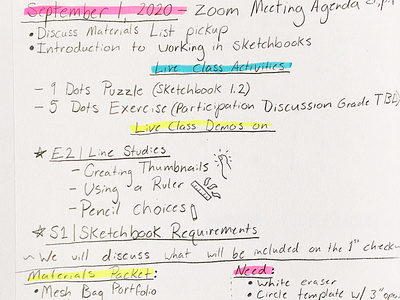 September 1, 2020 - Zoom Meeting Agenda
• Discuss Materials List pickup
• Introduction to working in sketchbooks
Live Class Activities
- 9 Dots Puzzle (Sketchbook 1.2)
- 5 Dots Exercise (Participation Discussion Grade TBD)
Live Class Demos on
★ E2 | Line Studies
- Creating Thumbnails
- Using a Ruler
- Pencil Choices
★ S1 | Sketchbook Requirements
~ We will discuss what will be included on the 1st
Materials Packet:
• Mesh Bag Portfolio
Need:
• White eraser
• Circle template w/ 3"